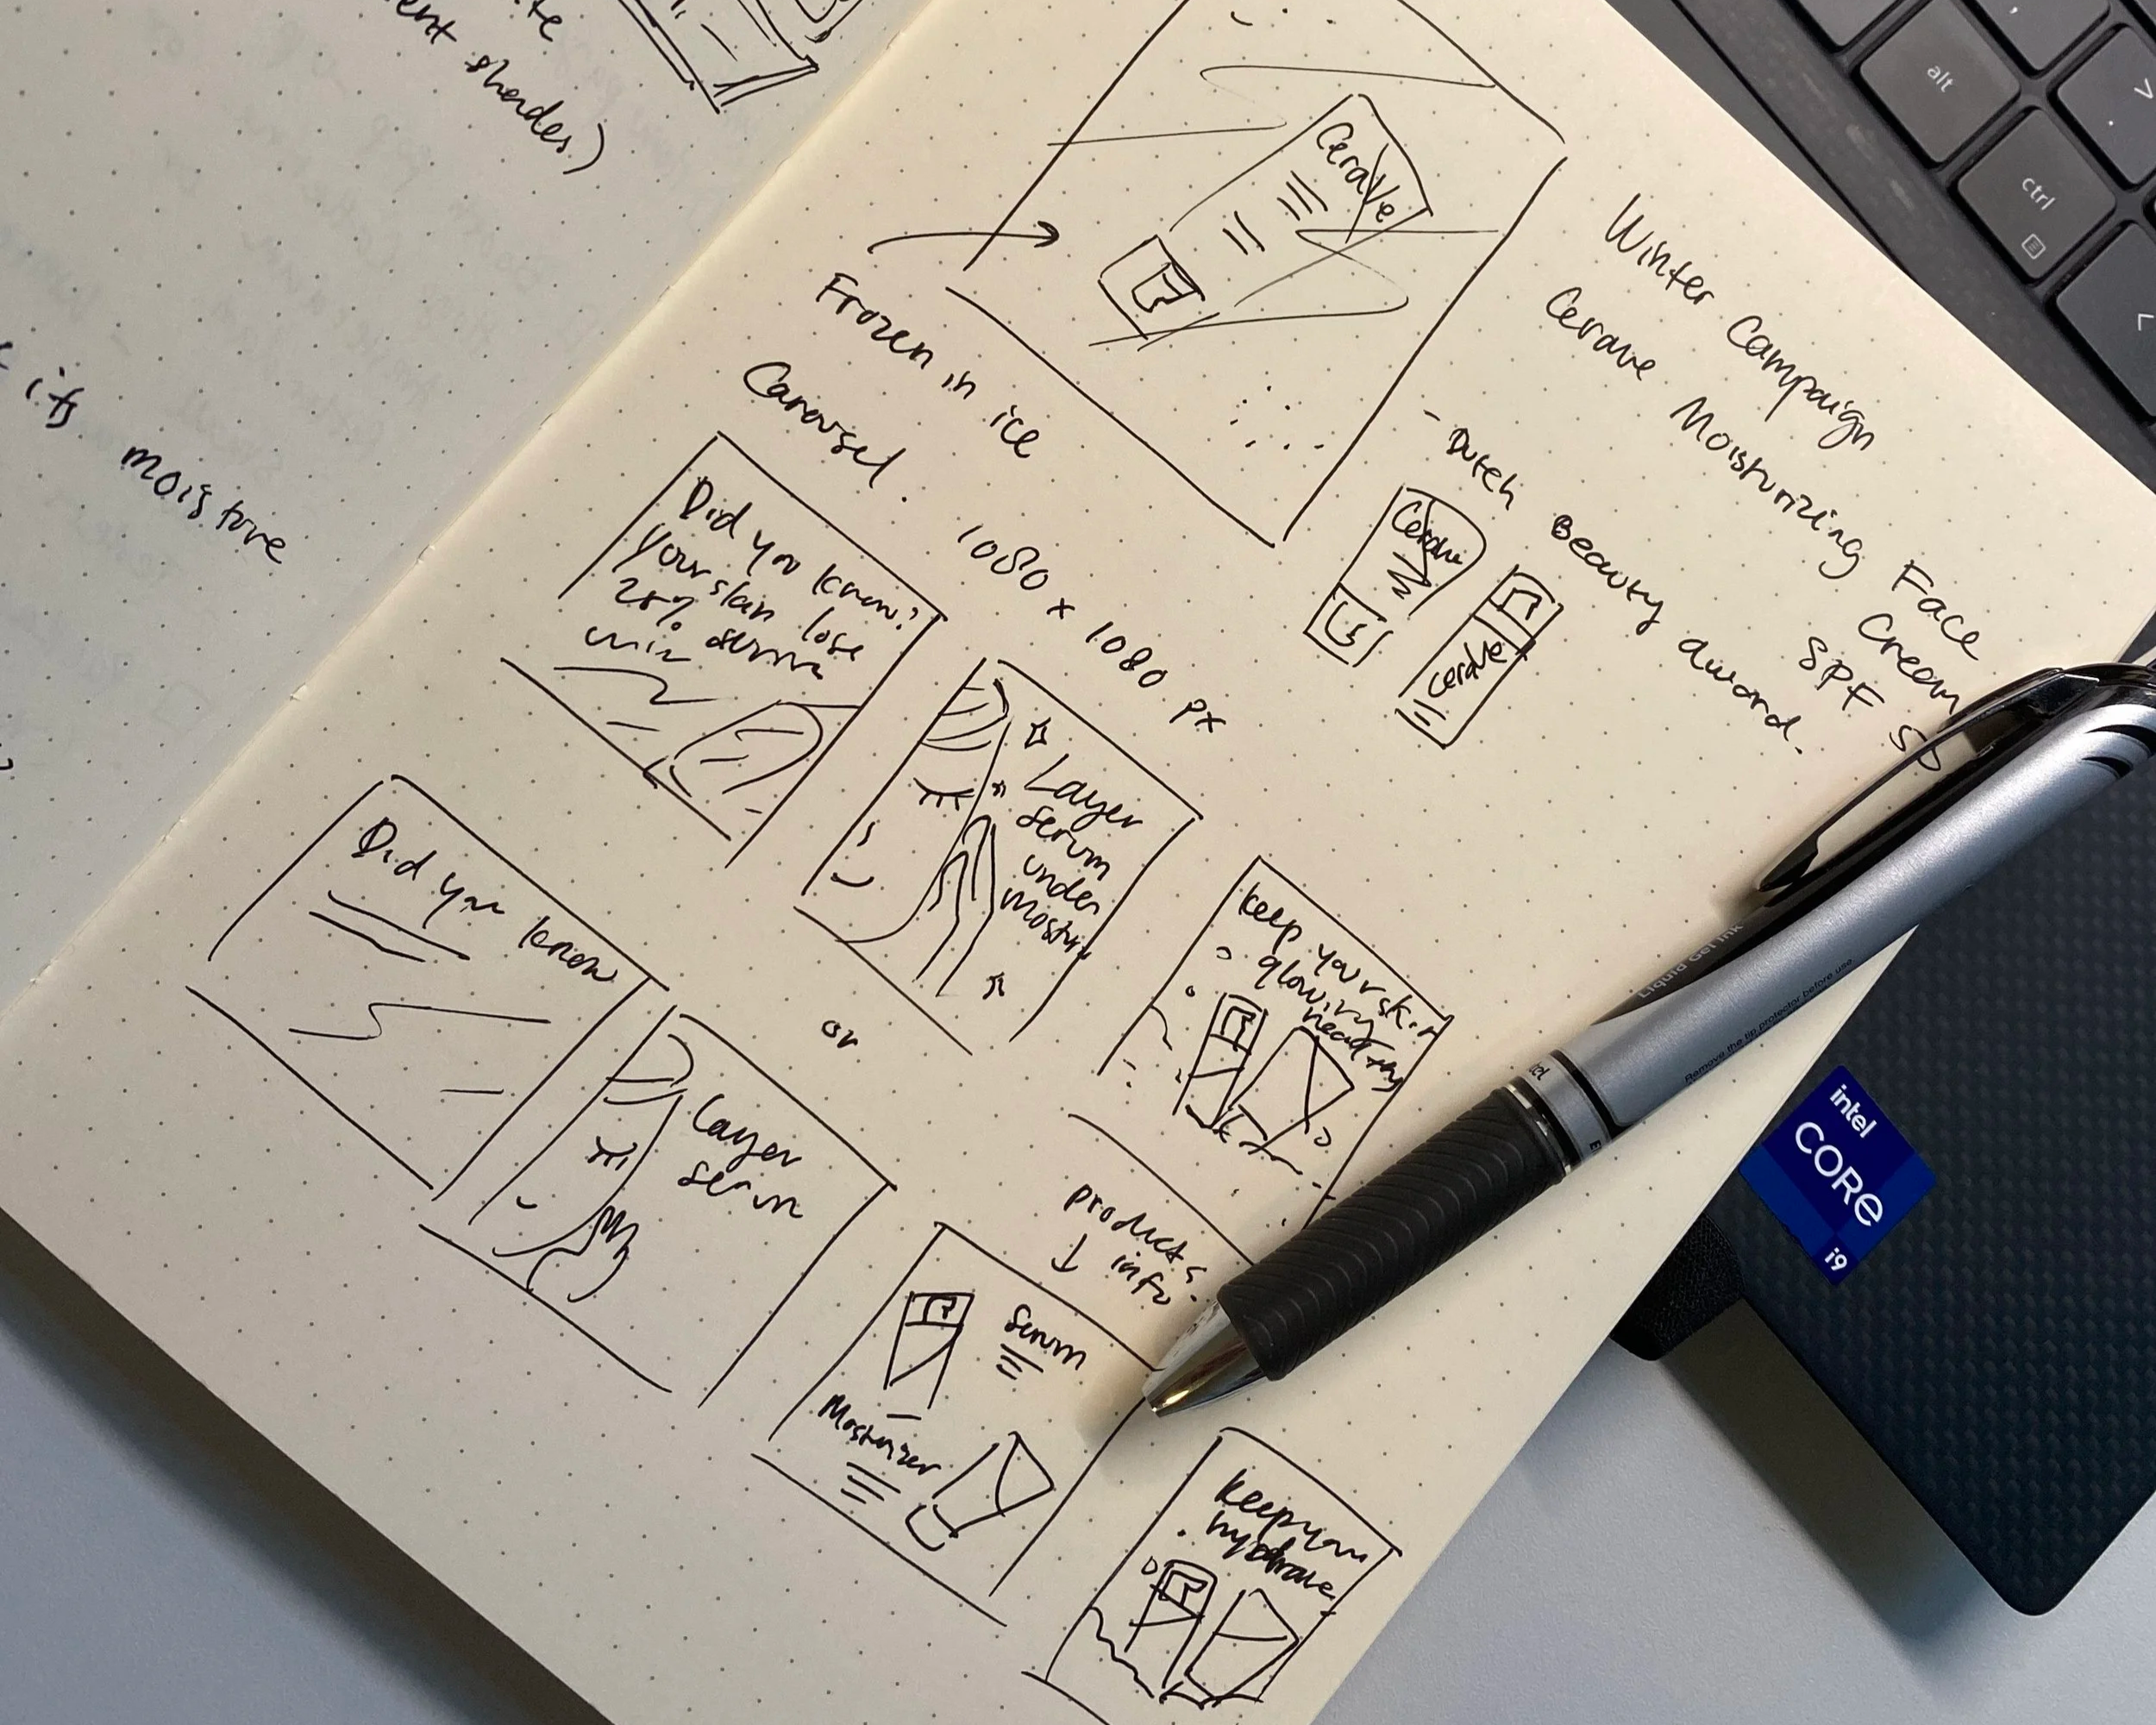 shades)
its moisture
CeraVe
Frozen in ice
Winter Campaign
Cerave Moisturizing Face
Cream
SPF 50
- Dutch Beauty award.
Cerave
Cerave
Carousel.
1080 x 1080 px
Did you know?
Your skin lose
Layer
serum
under
keep your skin
glowing
or
Did you know
Layer
products
↓ info.
Serum
Moisturizer
keep you
alt
ctrl
Liquid Gel Ink
Remove the tip protector before use
intel
CORE
i9